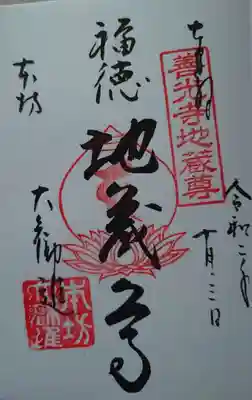 奉拝
善光寺地蔵尊
令和二年
十月三日
福徳
地蔵尊
本坊
大勧進
本坊
大勧進